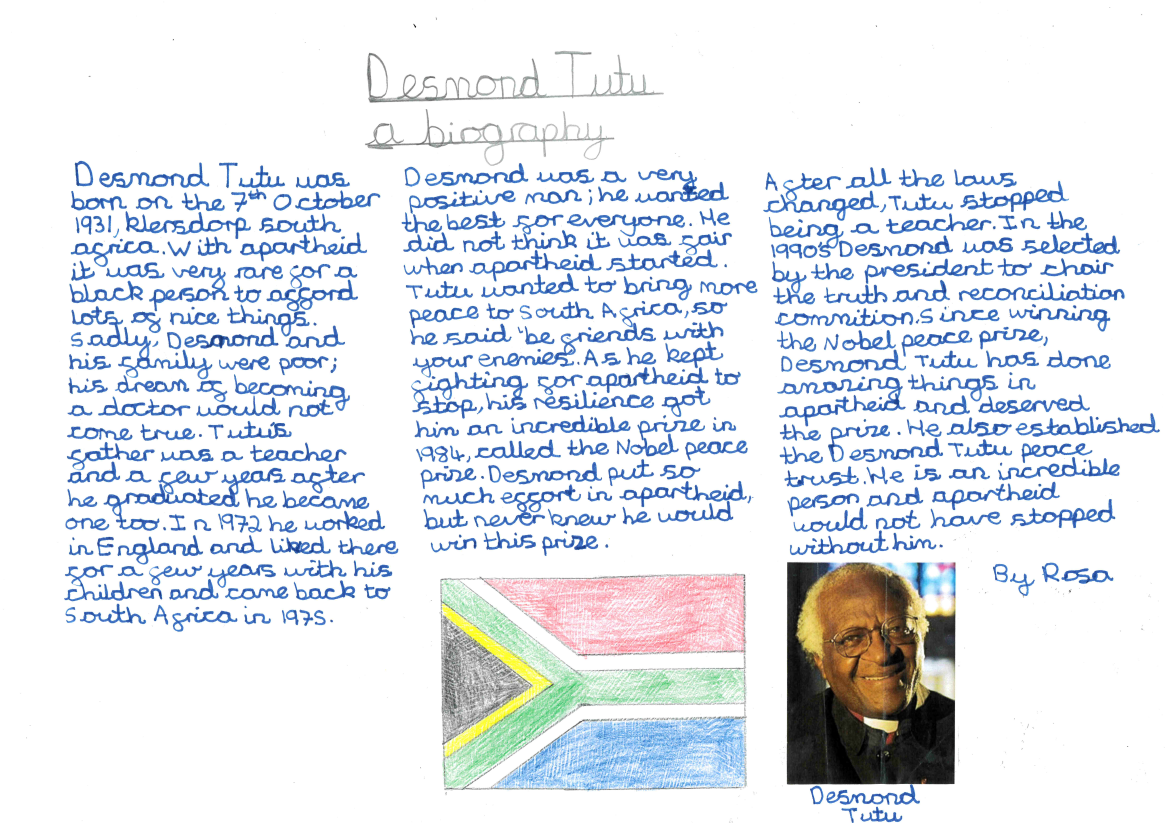 Desmond Tutu
a biography
Desmond Tutu was
born on the 7th October
1931, klersdorp south
africa. With apartheid
it was very rare for a
black person to afford
lots of nice things.
Sadly, Desmond and
his family were poor;
his dream of becoming
a doctor would not
come true. Tutu's
father was a teacher
and a few years after
he graduated he became
one too. In 1972 he worked
in England and liked there
for a few years with his
children and came back to
South Africa in 1975.
Desmond was a very
positive man; he wanted
the best for everyone. He
did not think it was fair
when apartheid started.
Tutu wanted to bring more
peace to South Africa, so
he said "be friends with
your enemies". As he kept
fighting for apartheid to
stop, his resilience got
him an incredible prize in
1984, called the Nobel peace
prize. Desmond put so
much effort in apartheid,
but never knew he would
win this prize.
After all the laws
changed, Tutu stopped
being a teacher. In the
1990s Desmond was selected
by the president to chair
the truth and reconciliation
commition. Since winning
the Nobel peace prize,
Desmond Tutu has done
amazing things in
apartheid and deserved
the prize. He also established
the Desmond Tutu peace
trust. He is an incredible
person and apartheid
would not have stopped
without him.
By Rosa
Desmond
Tutu